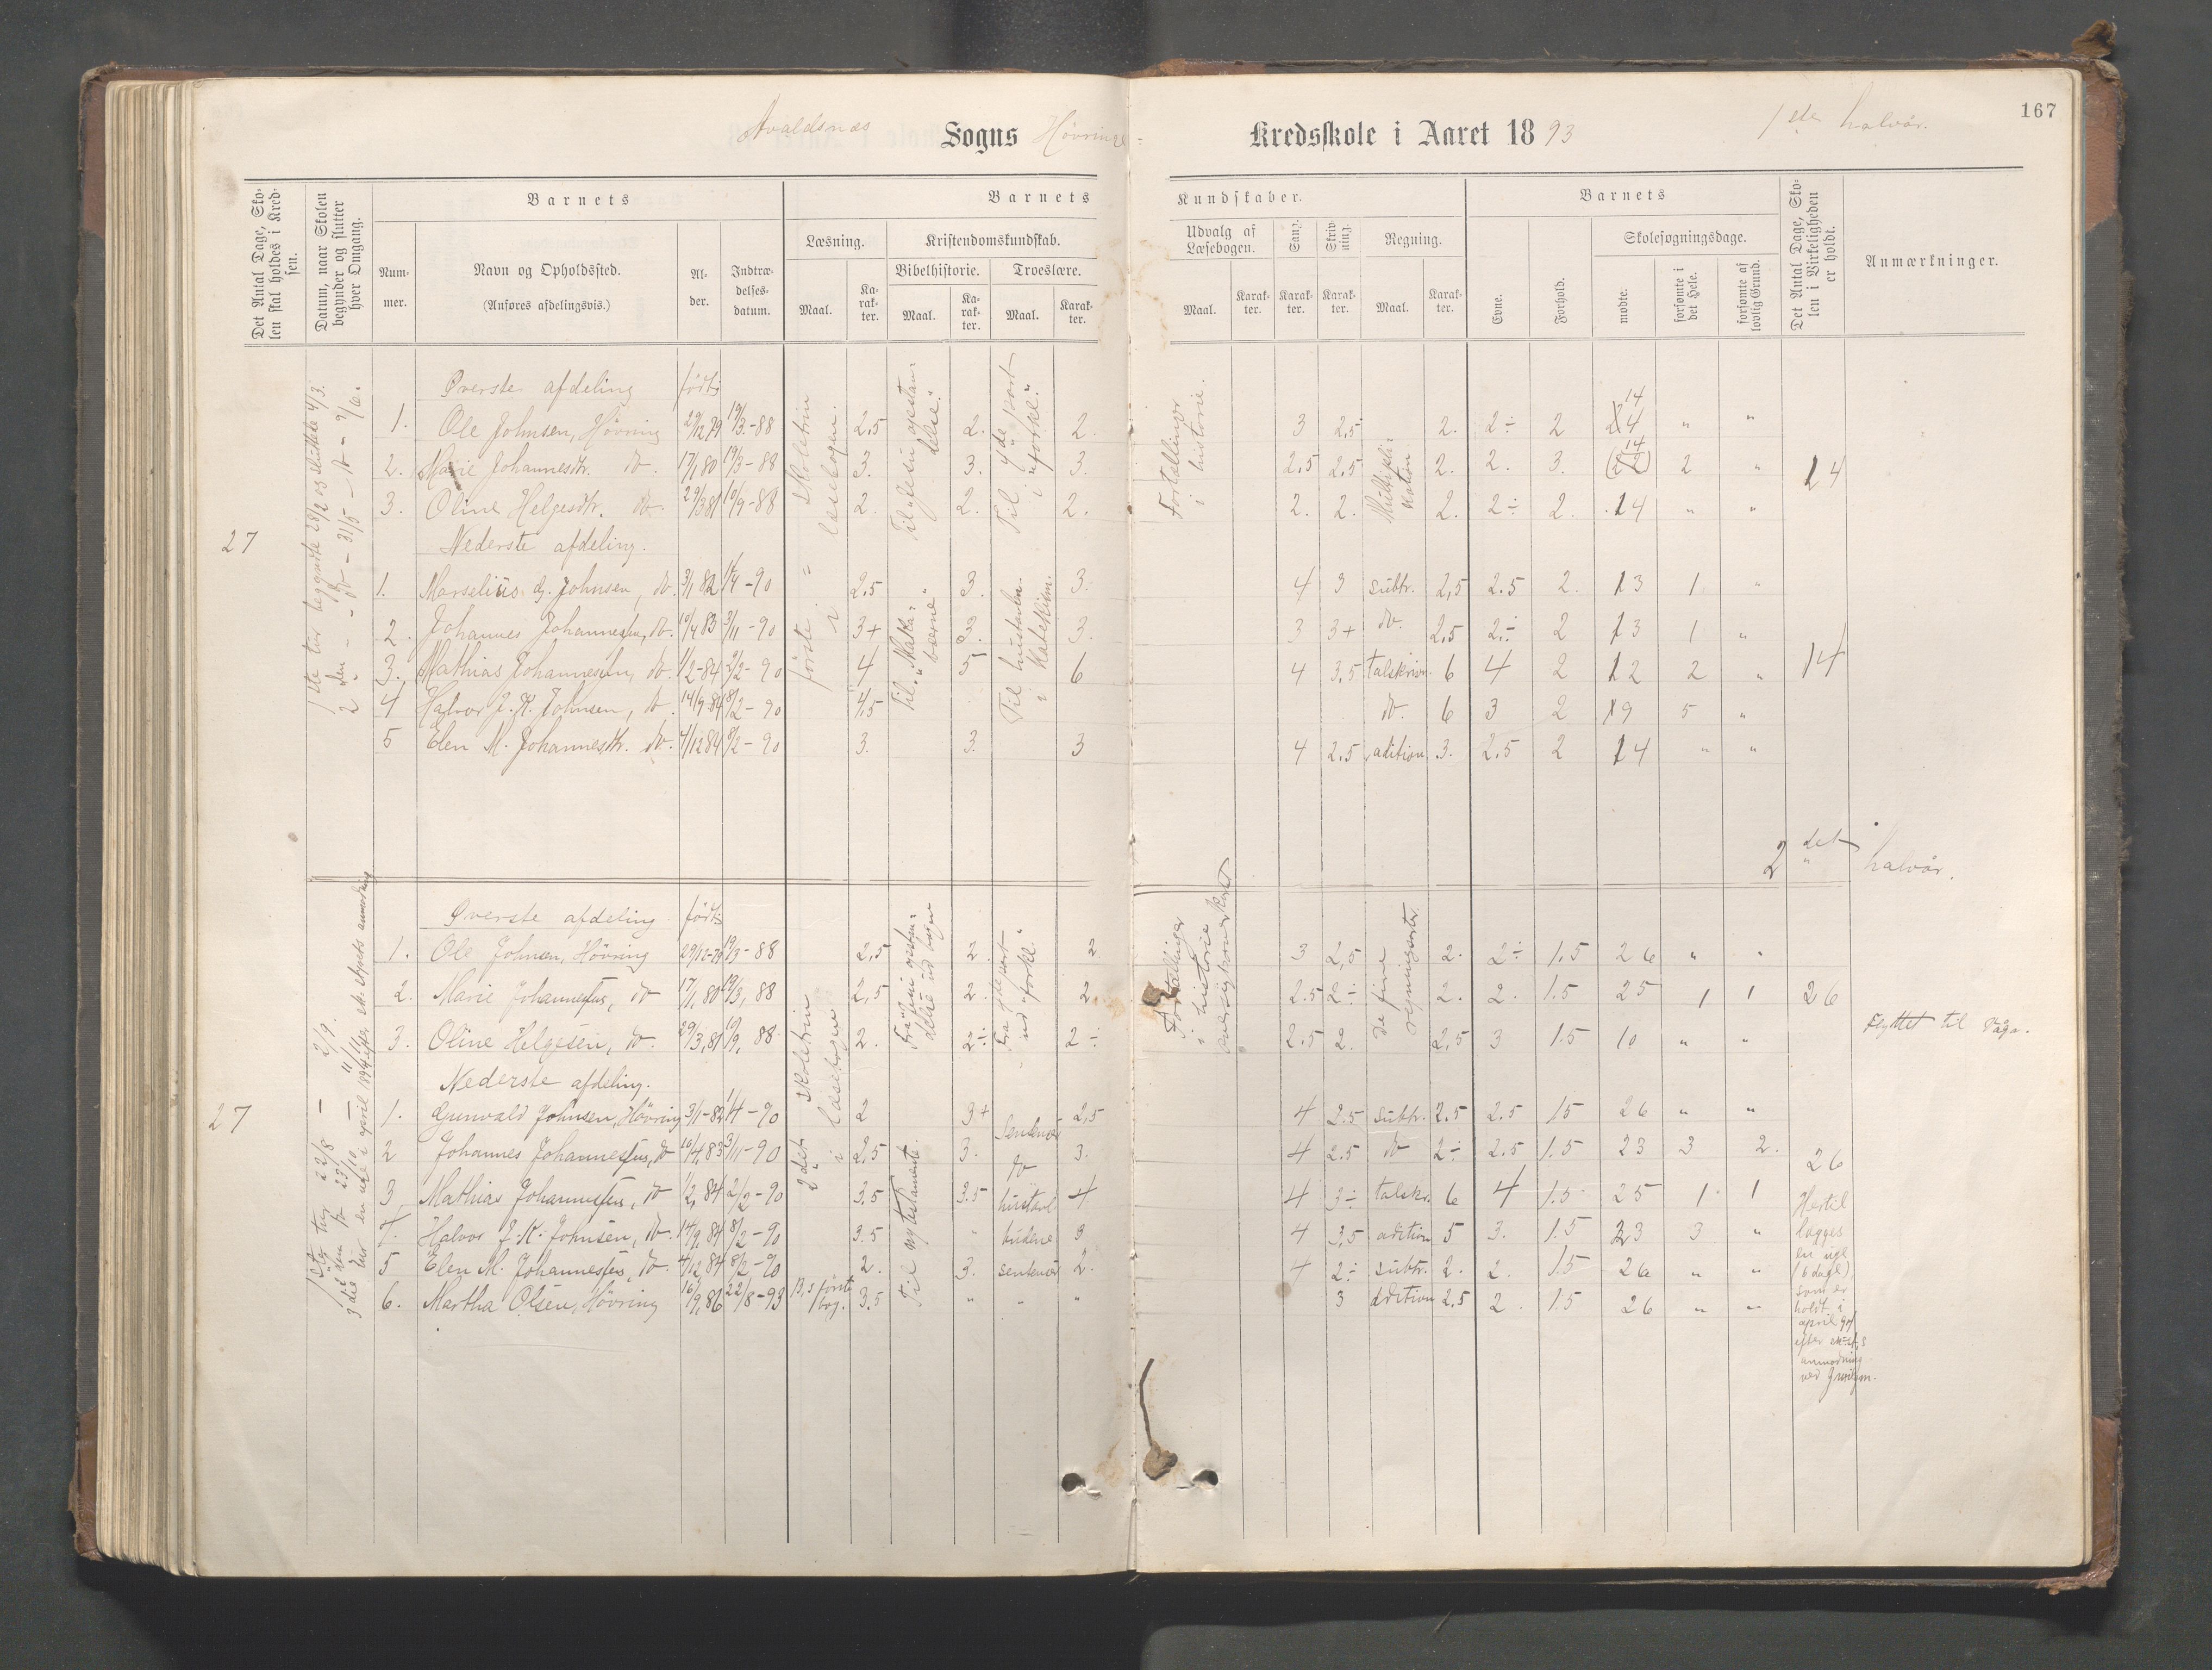 167
Avaldsnæs Sogns Hövring Kredsskole i Aaret 1893 1ste halvår.
Det Antal Dage, Skolen skal holdes i Kredsen.
Datum, naar Skolen begynder og slutter hver Omgang.
Barnets
Nummer.
Navn og Opholdssted.
(Anføres afdelingsvis.)
Alder.
Indtrædelsesdatum.
Barnets Kundskaber.
Læsning.
Maal.
Karakter.
Kristendomskundskab.
Bibelhistorie.
Maal.
Karakter.
Troeslære.
Maal.
Karakter.
Udvalg af Læsebogen.
Maal.
Karakter.
Sang.
Karakter.
Skrivning.
Karakter.
Regning.
Maal.
Karakter.
Barnets
Evne.
Forhold.
Skolesøgningsdage.
mødte.
forsømte i det Hele.
forsømte af lovlig Grund.
Det Antal Dage, Skolen i Virkeligheden er holdt.
Anmærkninger.
27
Øverste afdeling födt:
1. Ole Johnsen, Hövring 29/12 79 19/3-88 2,5 2. 2. 3 2,5 2. 2÷ 2 14 " "
2. Marie Johannesdtr. do. 17/1 80 19/3-88 3. 3. 3. 2.5 2.5 2. 2. 3. 2 "
3. Oline Helgesdtr. do. 29/3 81 10/9-88 2. 2. 2. 2. 2. 2. 2÷ 2. 14 " "
14
skoletrin i læsebogen.
Til Jesu opstandelse".
Til 4de part i "forkl."
Fortællinger i historie.
Multiplikation
Nederste afdeling.
1. Marselius G. Johnsen, do. 3/1 82 1/4-90 2,5 3. 3. 4 3 subtr. 2,5 2.5 2. 13 1 "
2. Johannes Johannesen, do. 10/4 83 3/11-90 3+ 3. 3. 3 3+ do. 2,5 2÷ 2 13 1 "
3. Mathias Johannesen, do. 1/2-84 2/2-90 4 5 6 4 3.5 talskrivn. 6 4 2 12 2 "
4 Halvor J. K. Johnsen, do. 14/9-84 8/2-90 4,5 do. 6 3 2 9 5 "
5 Elen M. Johannesdtr. do. 4/12 84 8/2-90 3. 3. 3 4 2.5 adition 3. 2.5 2 14 " "
14
Til hustavlen i katekismen.
2det halvår.
27
Øverste afdeling födt:
1. Ole Johnsen, Hövring 29/12-79 19/3-88 2,5 2. 2 3 2,5 2. 2÷ 1.5 26 " "
2. Marie Johannesens, do 17/1 80 19/3, 88 2,5 2. 2. 2.5 2÷ 2. 2. 1.5 25 1 1
3. Oline Helgesen, do. 29/3, 81 10/9, 88 2. 2÷ 2÷ 2.5 2. 2,5 3 1.5 10 " " Flyttet til
26
Fortællinger i historie
de fire regningsarter.
Nederste afdeling.
1. Gunvald Johnsen, Hövring 3/1-82 1/4-90 2 3+ sentenser 2,5 4 2.5 subtr. 2.5 2.5 15 26 " "
2 Johannes Johannesens, do 10/4, 83 3/11-90 2,5 3. do 3. 4 2.5 do 2÷ 2.5 1.5 23 3 2.
3 Mathias Johannesens, do 1/2, 84 2/2-90 3.5 3.5 hustavl. 4 4 3÷ talskr. 6 4 1.5 25 1 1
4. Halvor J. K. Johnsen, do. 14/9, 84 8/2-90 3.5 budene 3 4 3,5 adition 5 3. 1.5 23 3 "
5 Elen M. Johannesens, do. 4/12, 84 8/2-90 2. 3. sentenser 2. 4 2÷ subtr. 2. 2. 1.5 26 " "
6. Martha Olsen, Hövring 16/9, 86 22/8-93 förste bog. 3.5 " " " 3 adition 2,5 2. 1.5 26 " "
2det skoletrin i læsebogen
Til nytestamente.
26
Hertil
lægges
en uge
(6 dage)
som er
holdt i
april
efter
anmodning